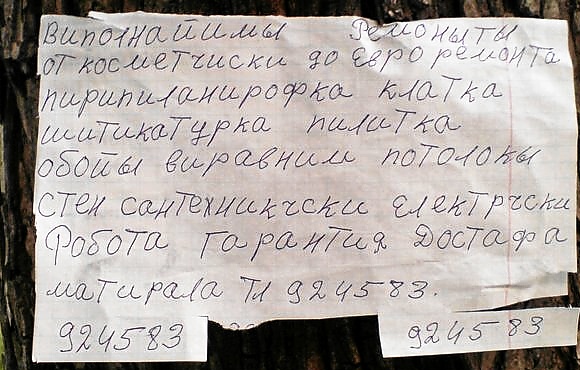 Виполнайимы Ремоныты
от косметчиски до евро ремонта
пирипиланирофка клатка
шитикатурка пилитка
оботы виравним потолокы
стен сантехникчски електрчски
Робота гарантия Достафа
матирала Тл 924583.
924583 924583